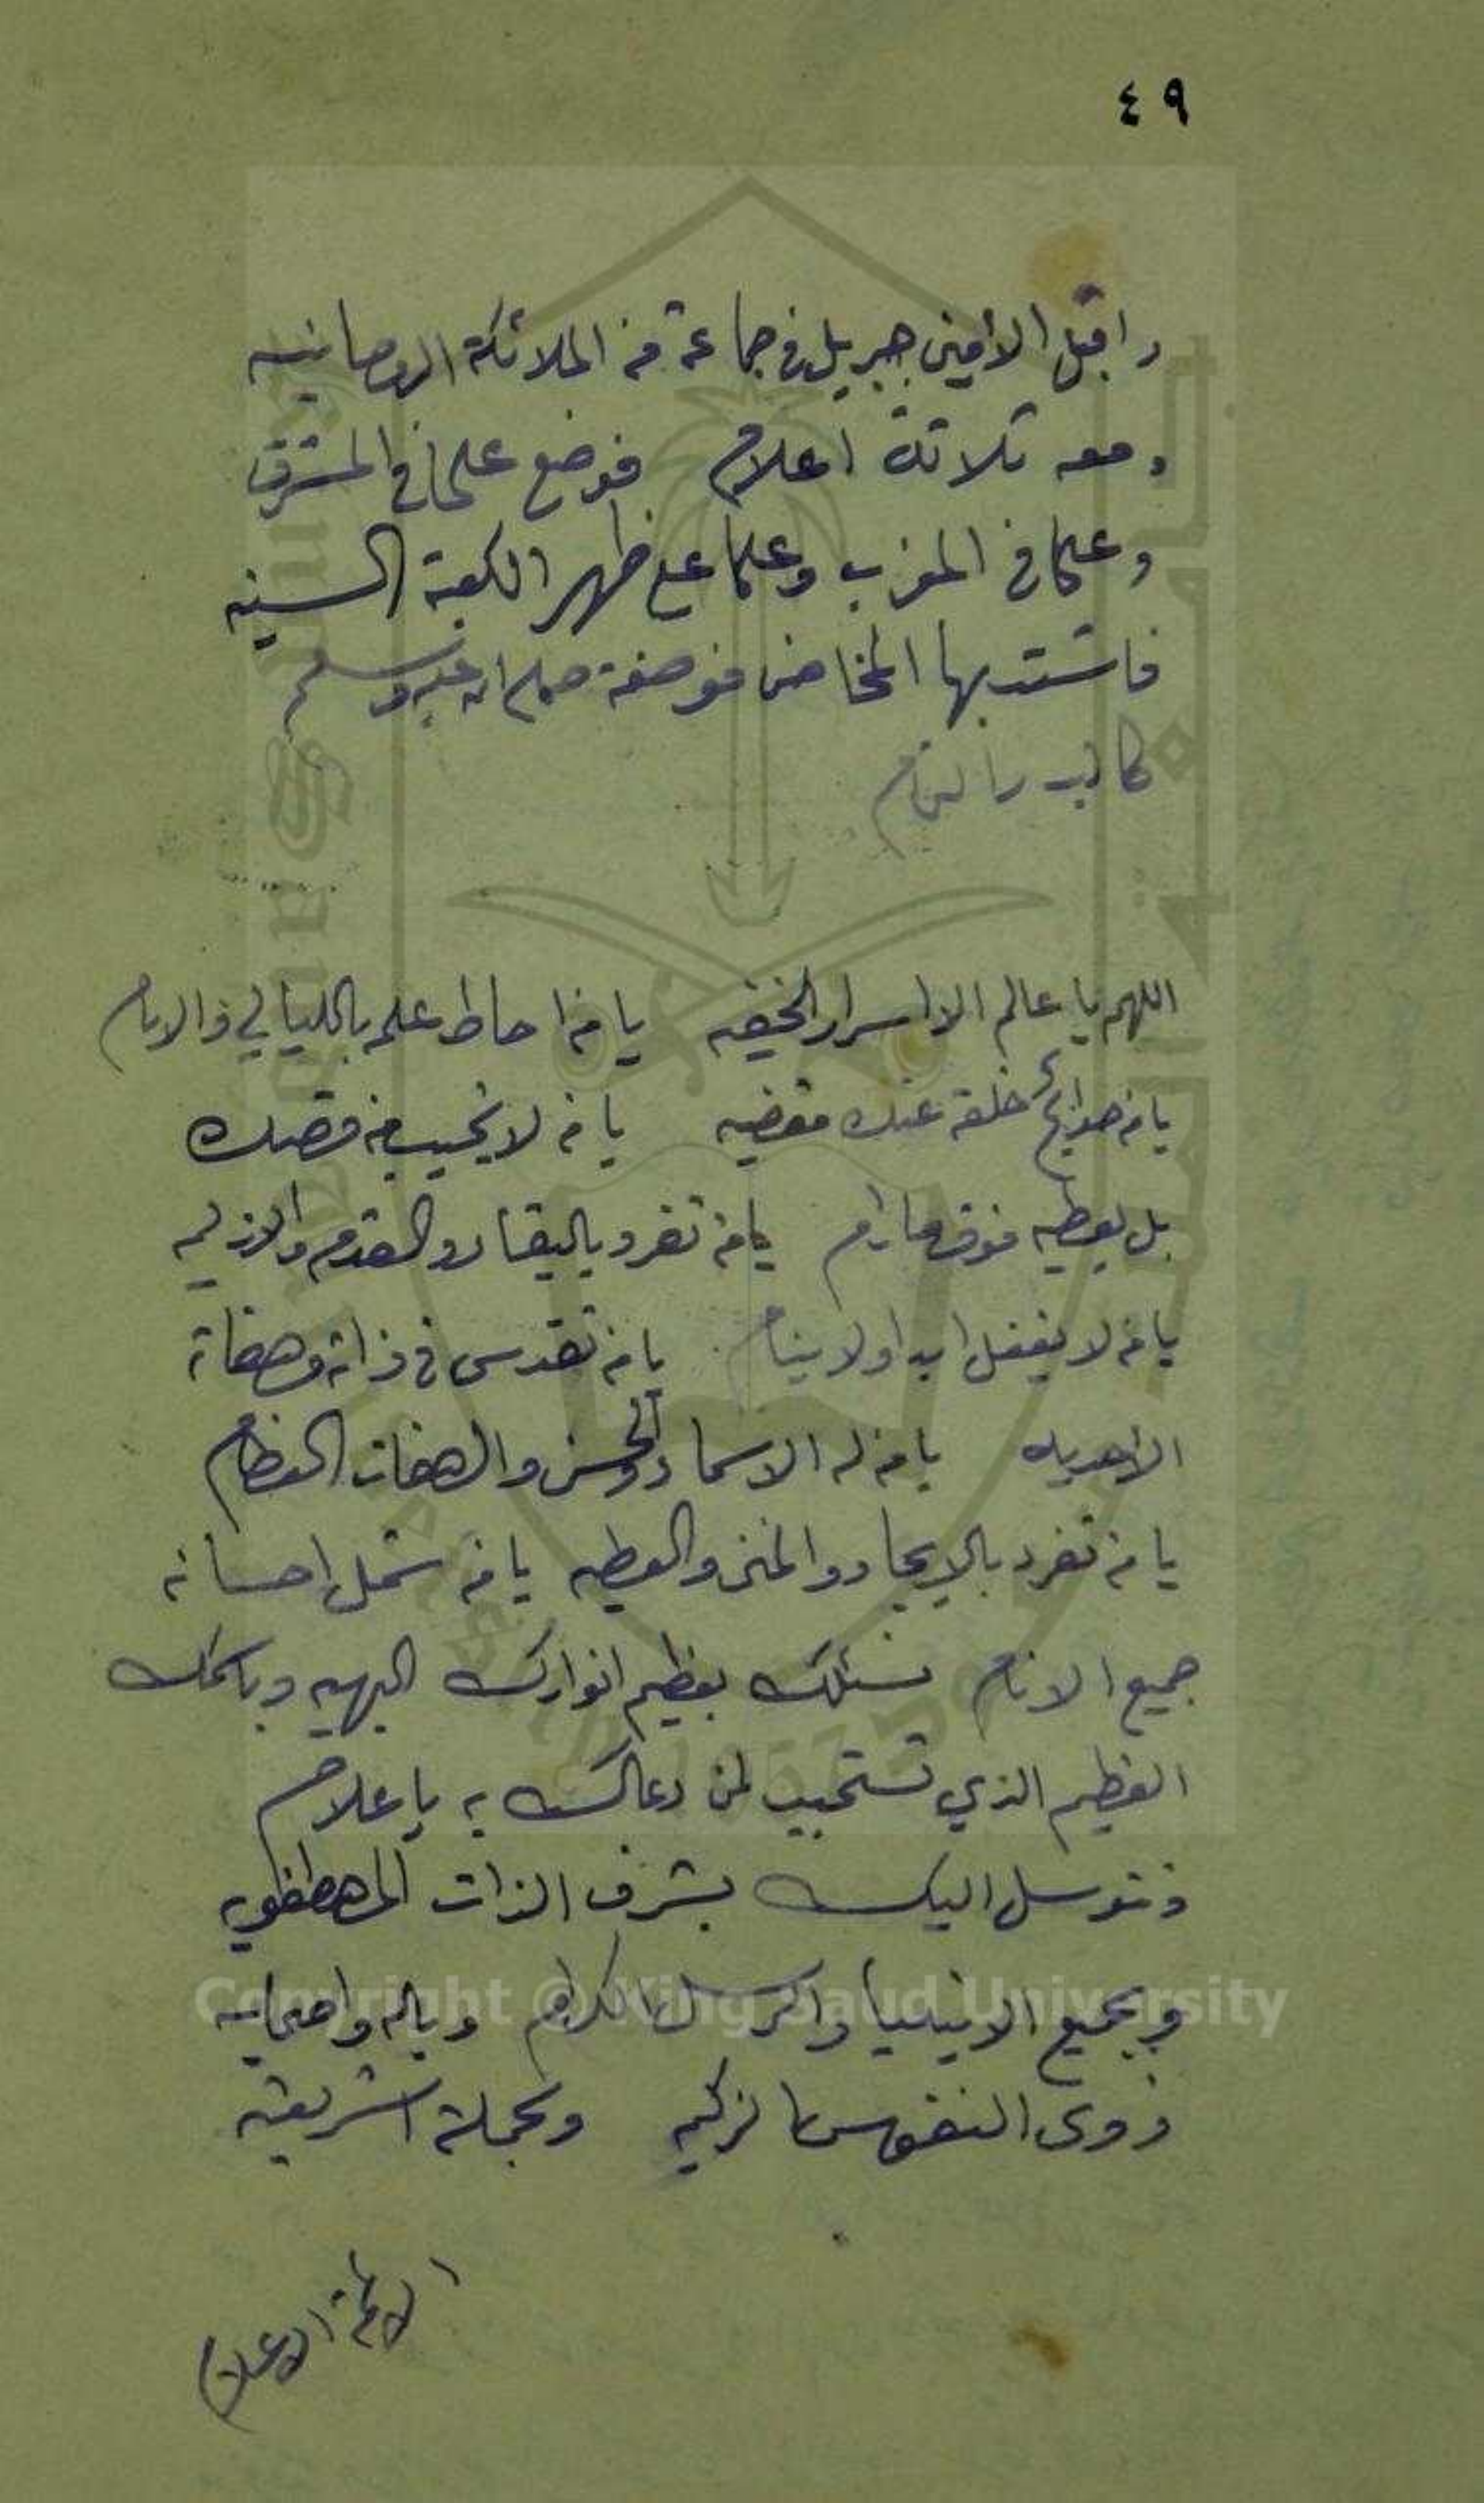 ٤٩
واقبل الأمين جبريل في جماعة من الملائكة الروحانيه
ومعه ثلاثة اعلام فوضع علما في المشرق
وعلما في المغرب وعلما على ظهر الكعبة السنيه
فاشتد بها المخاض فوضعته صلى الله عليه وسلم
كالبدر التمام
اللهم يا عالم الاسرار الخفيه يا من احاط علمه بالليالي والايام
يا من حوائج خلقه عنده مقضيه يا من لا يخيب من قصده
بل يعطيه فوق ما رام يا من تفرد بالبقاء والقدم والازليه
يا من لا يغفل ابدا ولا ينام يا من تقدس في ذاته وصفاته
الاحديه يا من له الاسماء الحسنى والصفات العظام
يا من تفرد بالايجاد والمنن والعطيه يا من شمل احسانه
جميع الانام نسئلك بعظيم انوارك البهيه وباسمك
العظيم الذي تستجيب لمن دعاك به يا علام
ونتوسل اليك بشرف الذات المصطفويه
وبجميع الانبيا والرسل الكرام وباله واصحابه
ذوى النفوس الزكيه وبحملة الشريعه
الائمة الاعلام
Copyright © King Saud University